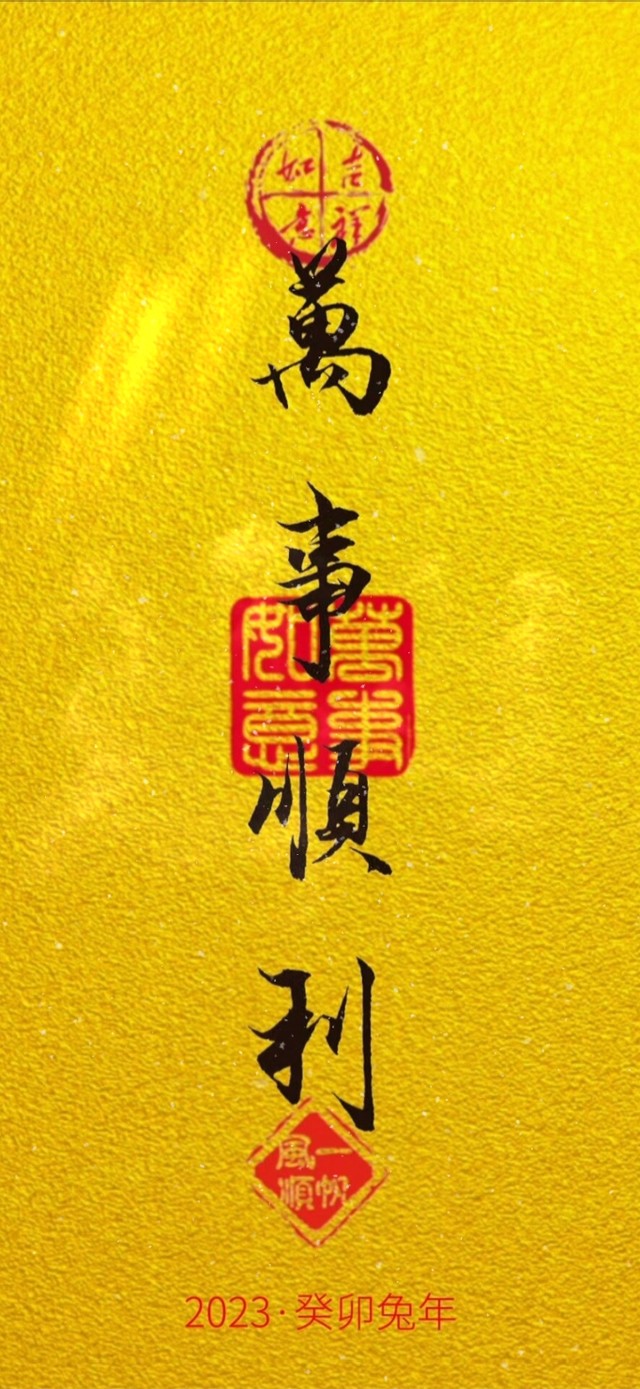 吉祥
如意
萬事順利
萬事
如意
一帆
風順
2023·癸卯兔年